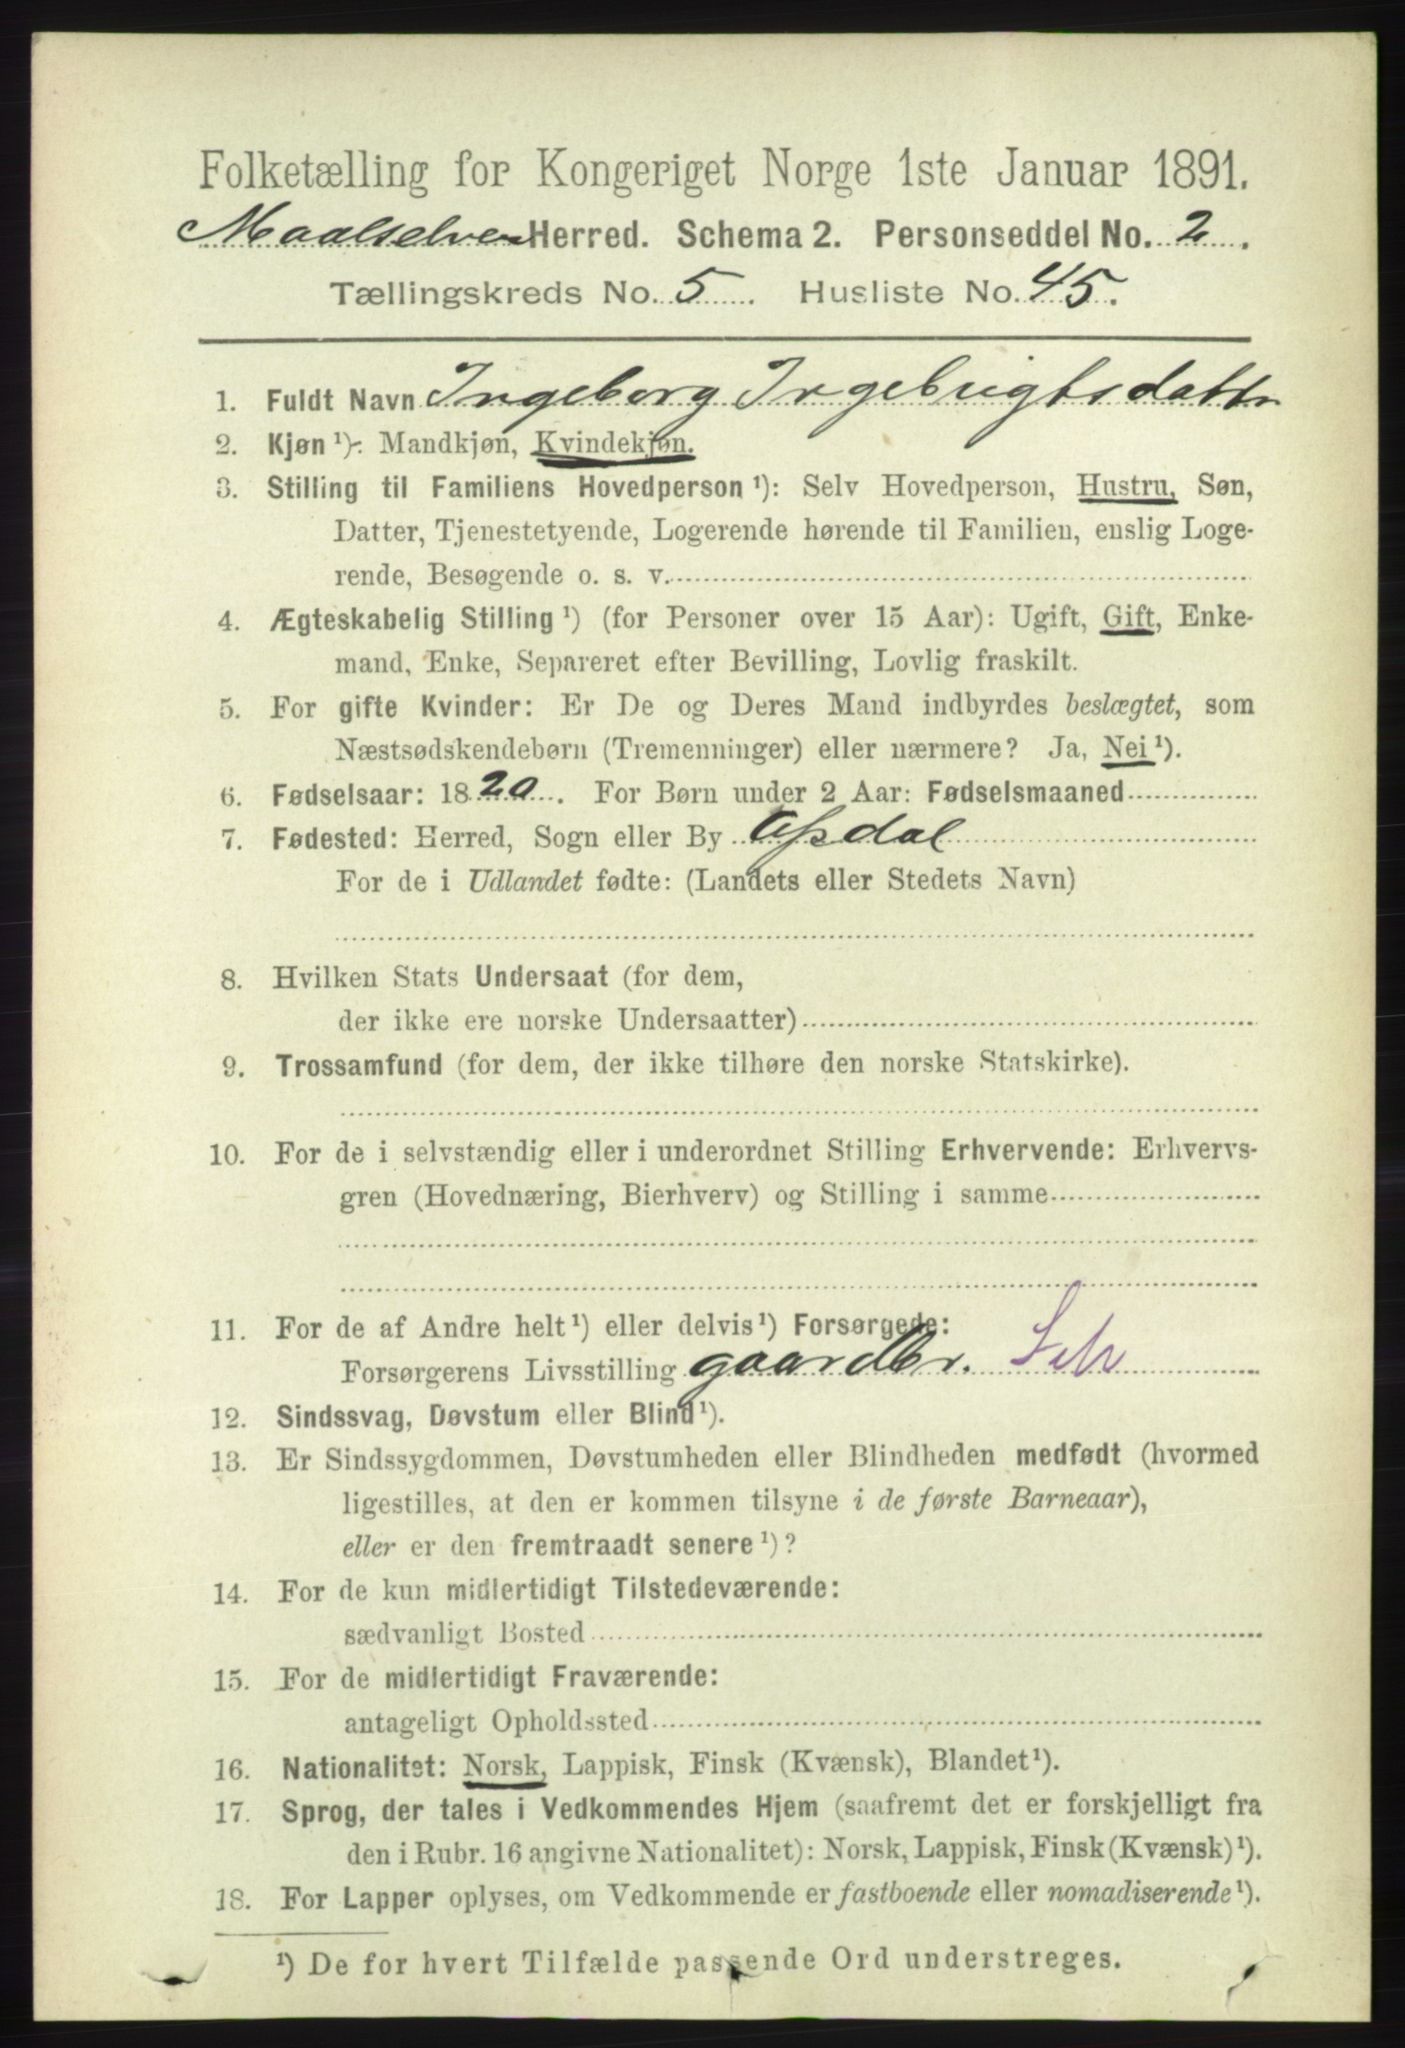 Folketælling for Kongeriget Norge 1ste Januar 1891.
Maalselven Herred. Schema 2. Personseddel No. 2.
Tællingskreds No. 5. Husliste No. 45.
1. Fuldt Navn Ingeborg Ingebrigtsdattr
2. Kjøn ¹): Mandkjøn, Kvindekjøn.
3. Stilling til Familiens Hovedperson ¹): Selv Hovedperson, Hustru, Søn,
Datter, Tjenestetyende, Logerende hørende til Familien, enslig Loge-
rende, Besøgende o. s. v.
4. Ægteskabelig Stilling ¹) (for Personer over 15 Aar): Ugift, Gift, Enke-
mand, Enke, Separeret efter Bevilling, Lovlig fraskilt.
5. For gifte Kvinder: Er De og Deres Mand indbyrdes beslægtet, som
Næstsødskendebørn (Tremenninger) eller nærmere? Ja, Nei ¹).
6. Fødselsaar: 1820. For Børn under 2 Aar: Fødselsmaaned
7. Fødested: Herred, Sogn eller By Opdal
For de i Udlandet fødte: (Landets eller Stedets Navn)
8. Hvilken Stats Undersaat (for dem,
der ikke ere norske Undersaatter)
9. Trossamfund (for dem, der ikke tilhøre den norske Statskirke).
10. For de i selvstændig eller i underordnet Stilling Erhvervende: Erhvervs-
gren (Hovednæring, Bierhverv) og Stilling i samme
11. For de af Andre helt ¹) eller delvis ¹) Forsørgede:
Forsørgerens Livsstilling gaardbr.
12. Sindssvag, Døvstum eller Blind ¹).
13. Er Sindssygdommen, Døvstumheden eller Blindheden medfødt (hvormed
ligestilles, at den er kommen tilsyne i de første Barneaar),
eller er den fremtraadt senere ¹)?
14. For de kun midlertidigt Tilstedeværende:
sædvanligt Bosted
15. For de midlertidigt Fraværende:
antageligt Opholdssted
16. Nationalitet: Norsk, Lappisk, Finsk (Kvænsk), Blandet ¹).
17. Sprog, der tales i Vedkommendes Hjem (saafremt det er forskjelligt fra
den i Rubr. 16 angivne Nationalitet): Norsk, Lappisk, Finsk (Kvænsk) ¹).
18. For Lapper oplyses, om Vedkommende er fastboende eller nomadiserende ¹).
¹) De for hvert Tilfælde passende Ord understreges.